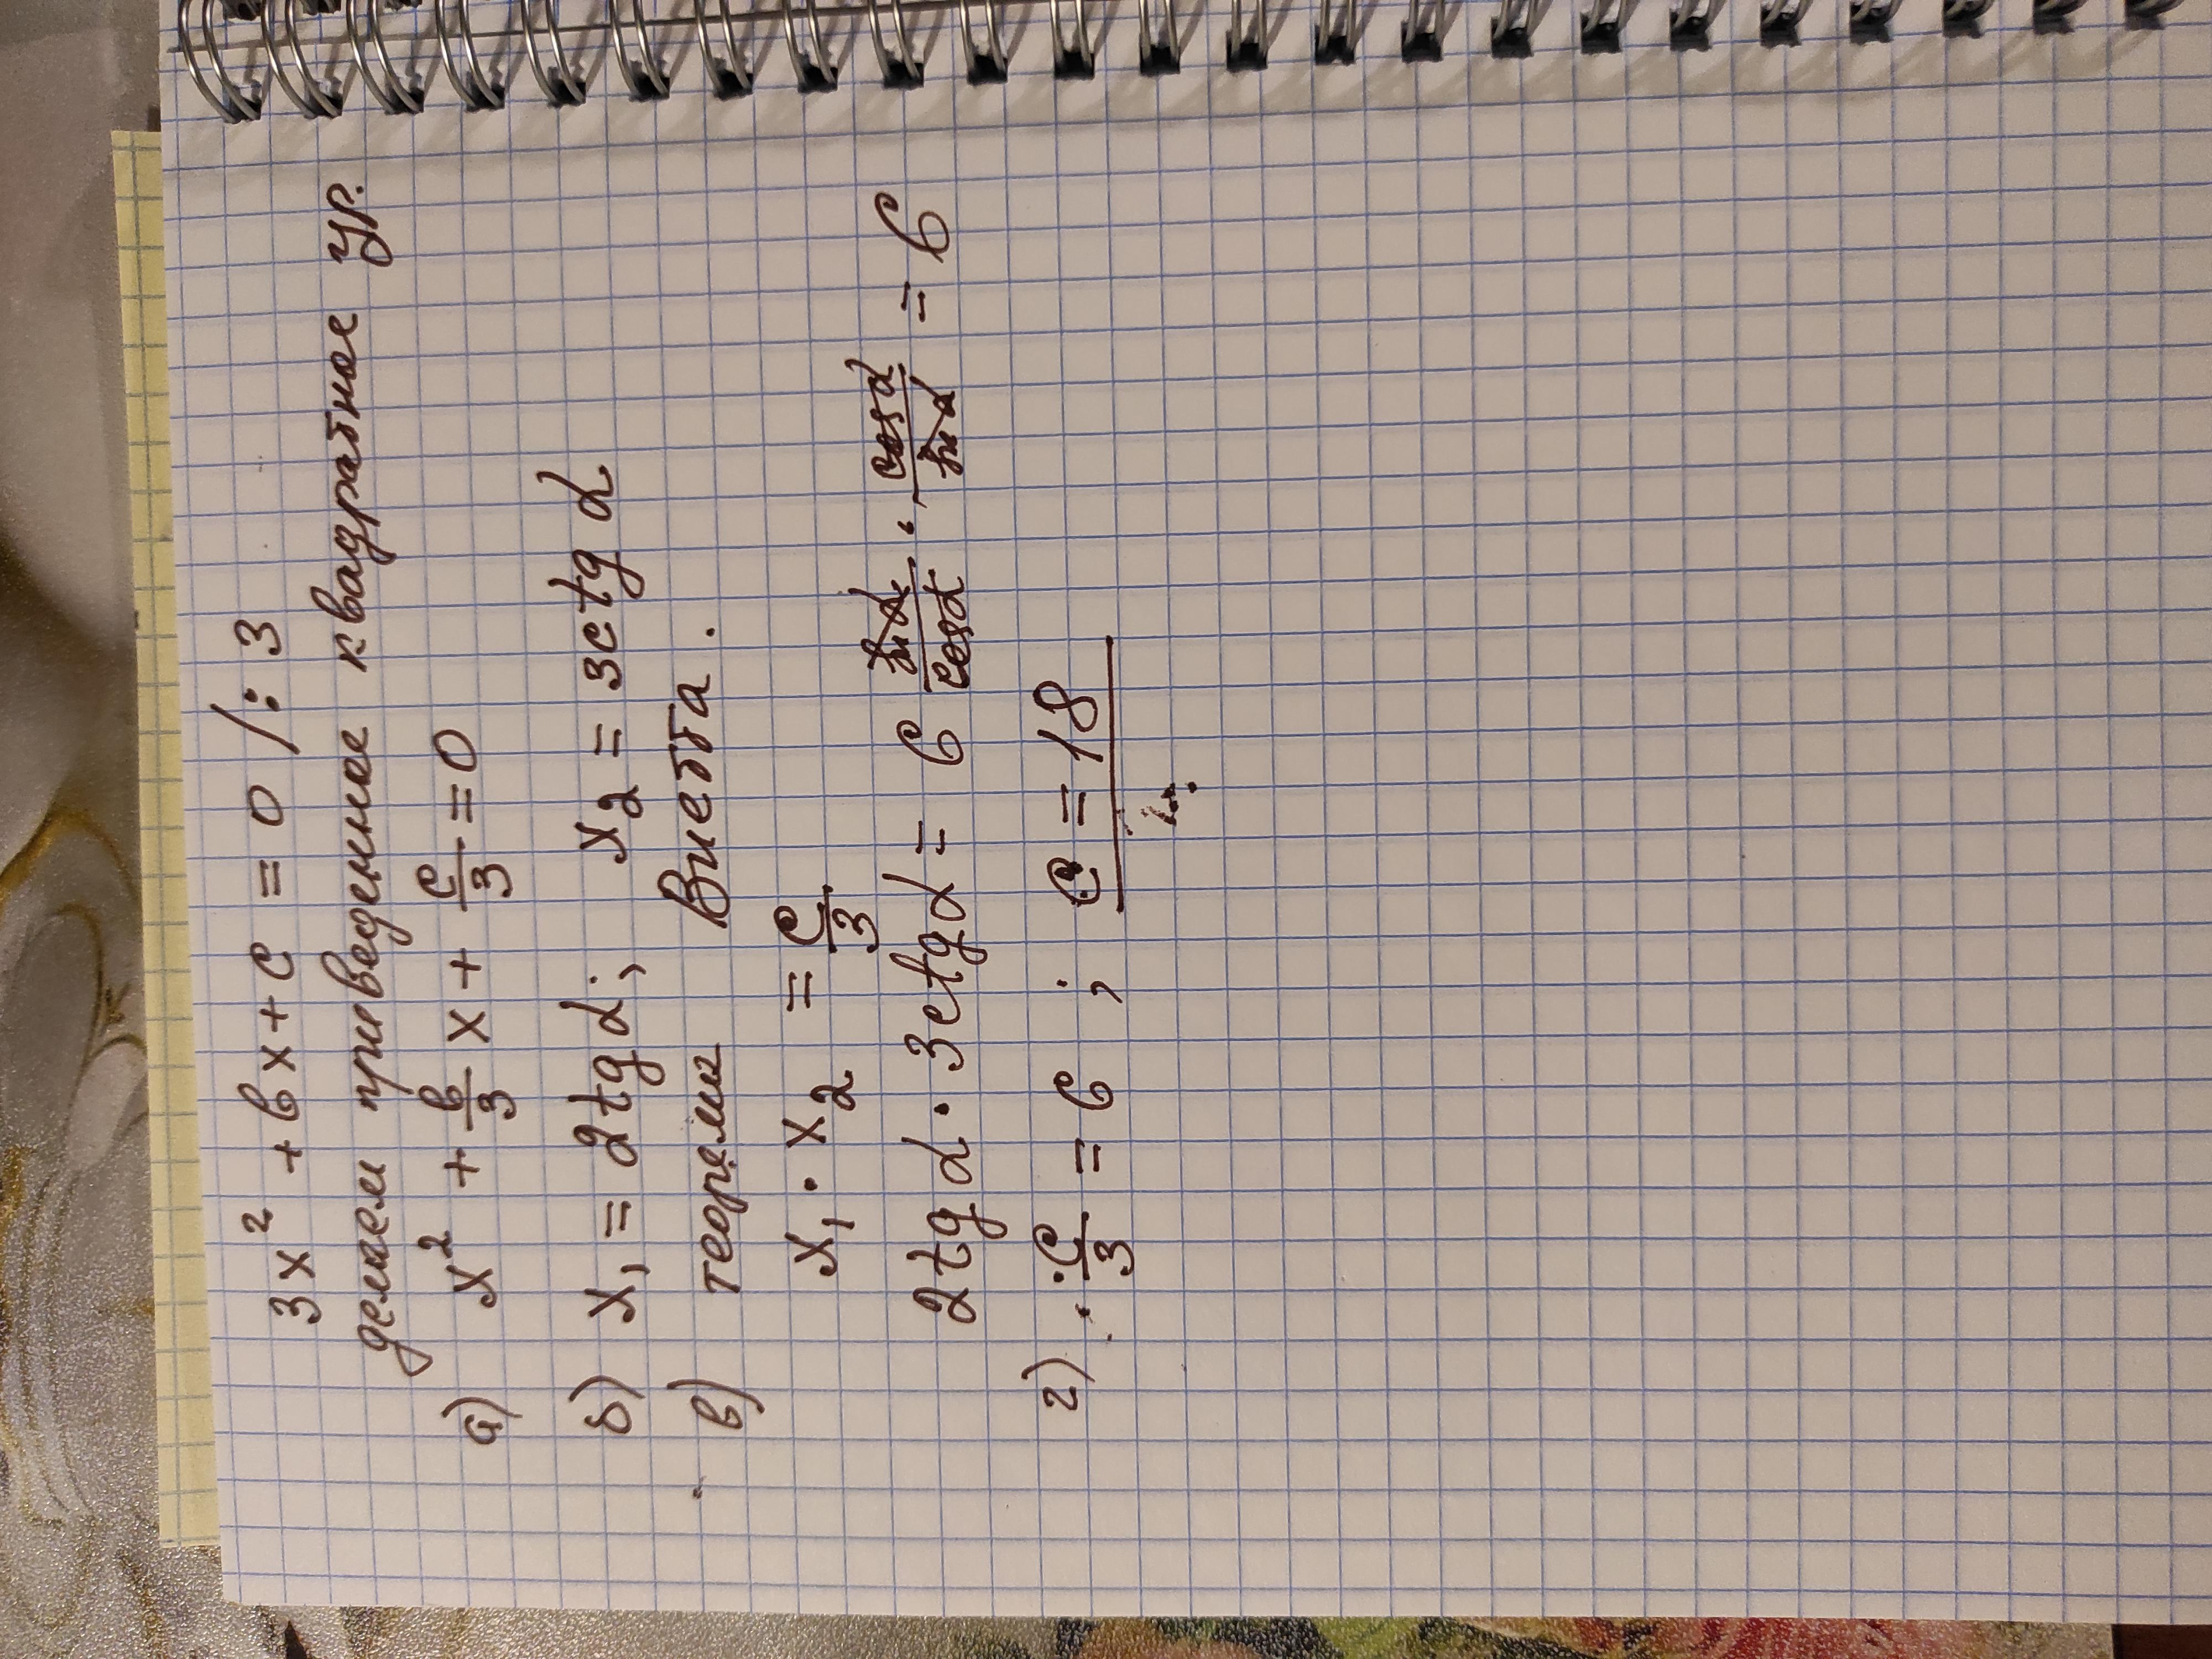 3x² + bx + c = 0 /: 3
делаем приведенное квадратное ур.
а) x² + b/3 x + c/3 = 0
б) x₁ = 2tg α; x₂ = 3ctg α
в) теорема Виетта.
x₁ · x₂ = c/3
2tg α · 3ctg α = 6 sin α/cos α · cos α/sin α = 6
г) c/3 = 6 ; c = 18